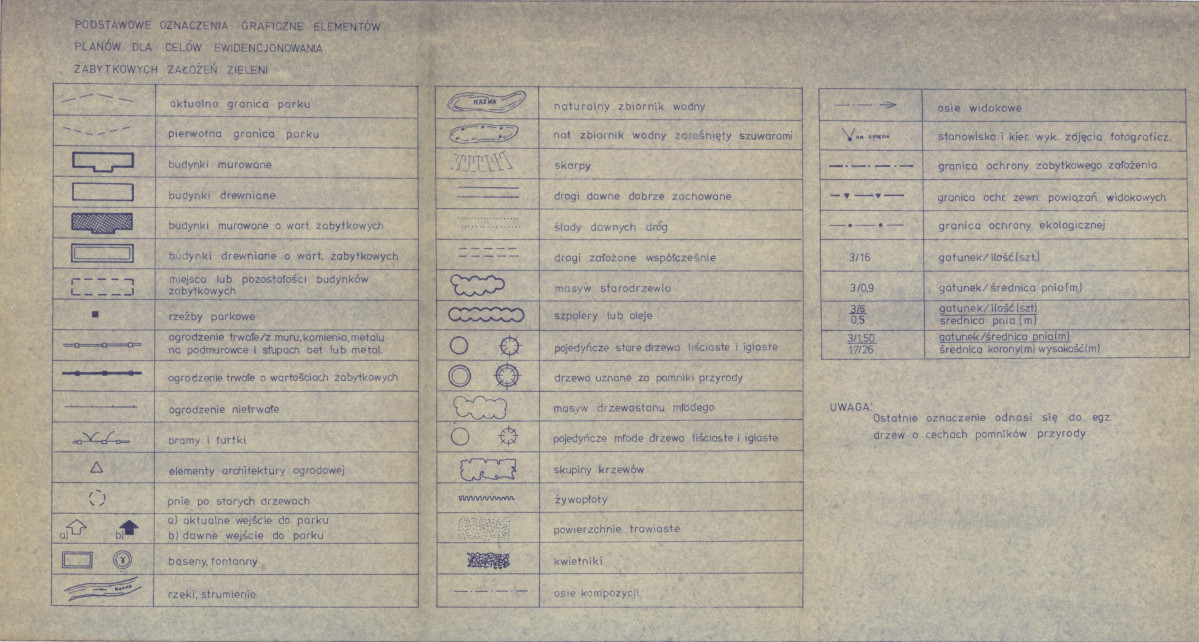 PODSTAWOWE OZNACZENIA GRAFICZNE ELEMENTÓW
PLANÓW DLA CELÓW EWIDENCJONOWANIA
ZABYTKOWYCH ZAŁOŻEŃ ZIELENI
aktualna granica parku
pierwotna granica parku
budynki murowane
budynki drewniane
budynki murowane o wart. zabytkowych
budynki drewniane o wart. zabytkowych
miejsca lub pozostałości budynków
zabytkowych
rzeźby parkowe
ogrodzenie trwałe/z muru, kamienia, metalu
na podmurowce i słupach bet lub metal.
ogrodzenie trwałe o wartościach zabytkowych
ogrodzenie nietrwałe
bramy i furtki
elementy architektury ogrodowej
pnie po starych drzewach
a) b)
a) aktualne wejście do parku
b) dawne wejście do parku
baseny, fontanny
rzeki, strumienie
NAZWA
naturalny zbiornik wodny
nat zbiornik wodny zarośnięty szuwarami
skarpy
drogi dawne dobrze zachowane
ślady dawnych dróg
drogi założone współcześnie
masyw starodrzewia
szpalery lub aleje
pojedyńcze stare drzewa liściaste i iglaste
drzewa uznane za pomniki przyrody
masyw drzewostanu młodego
pojedyńcze młode drzewa liściaste i iglaste
skupiny krzewów
żywopłoty
powierzchnie trawiaste
kwietniki
osie kompozycji
osie widokowe
stanowisko i kier. wyk. zdjęcia fotograficz.
granica ochrony zabytkowego założenia
granica ochr. zewn. powiązań widokowych
granica ochrony ekologicznej
3/16 gatunek/ilość(szt.)
3/0,9 gatunek/średnica pnia(m)
3/6 gatunek/ilość(szt)
0,5 średnica pnia (m)
3/1,50 gatunek/średnica pnia(m)
17/26 średnica korony(m) wysokość(m)
UWAGA:
Ostatnie oznaczenie odnosi się do egz.
drzew o cechach pomników przyrody